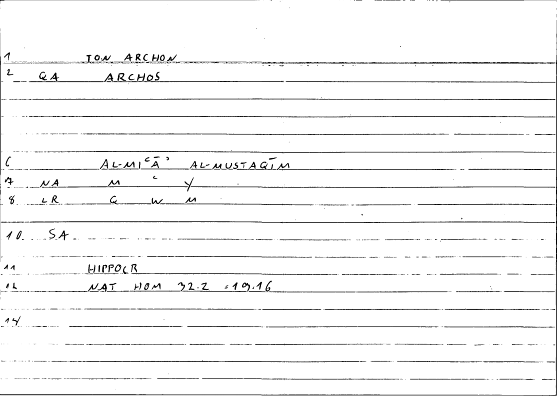 1 TON ARCHON
2 GA ARCHOS
6 AL-MIʿĀʾ AL-MUSTAQĪM
7 NA M ʿ Y
8 LR Q W M
10 SA
11 HIPPOCR
12 NAT HOM 32.2 = 19.16
14